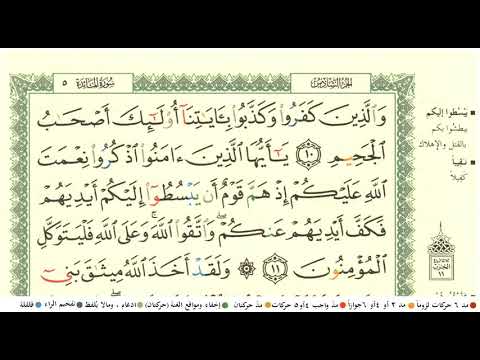 سُورَةُ المَائـِدَةِ ٥
الجُزءُ السَّادِسُ
وَالَّذِينَ كَفَرُوا۟ وَكَذَّبُوا۟ بِـَٔايَـٰتِنَآ أُو۟لَـٰٓئِكَ أَصْحَـٰبُ
ٱلْجَحِيمِ ١٠ يَـٰٓأَيُّهَا ٱلَّذِينَ ءَامَنُوا۟ ٱذْكُرُوا۟ نِعْمَتَ
ٱللَّهِ عَلَيْكُمْ إِذْ هَمَّ قَوْمٌ أَن يَبْسُطُوٓا۟ إِلَيْكُمْ أَيْدِيَهُمْ
فَكَفَّ أَيْدِيَهُمْ عَنكُمْ ۖ وَٱتَّقُوا۟ ٱللَّهَ ۚ وَعَلَى ٱللَّهِ فَلْيَتَوَكَّلِ
ٱلْمُؤْمِنُونَ ١١ ۞ وَلَقَدْ أَخَذَ ٱللَّهُ مِيثَـٰقَ بَنِىٓ
يَبْسُطُوا إليكم
يبطشوا بكم
بالقتل والإهلاك
نقيباً
كفيلاً
١١
مد ٦ حركات لزوماً
مد ٢ أو ٤ أو ٦ جوازاً
مد واجب ٤ أو ٥ حركات
مد حركتان
إخفاء، ومواقع الغنة (حركتان)
ادغام، وما لا يُلفظ
تفخيم الراء
قلقلة